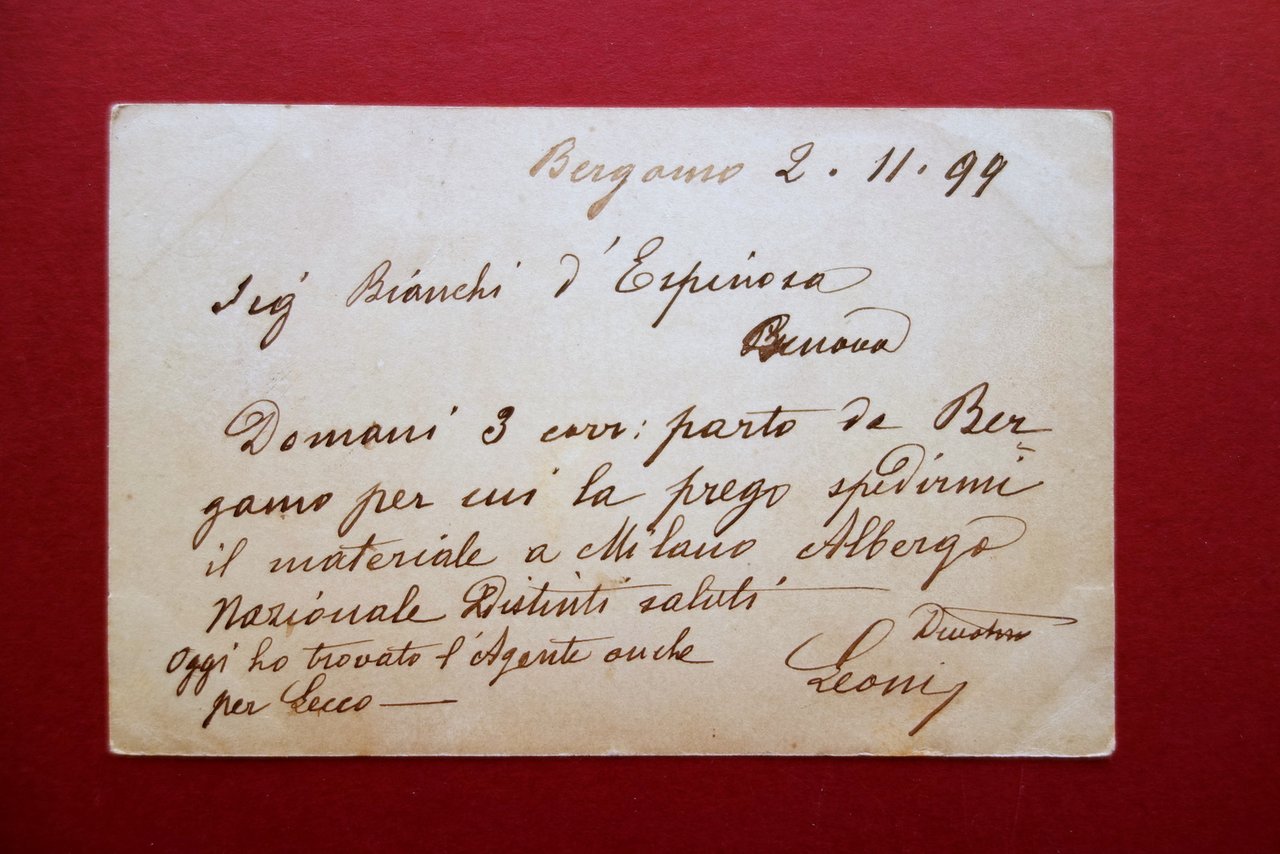 Bergamo 2. 11. 99
Sig Bianchi d'Espinosa
Domani 3 corr: parto da Ber-
gamo per cui la prego spedirmi
il materiale a Milano Albergo
Nazionale Distinti saluti
Oggi ho trovato l'Agente anche
per Lecco —
Leoni